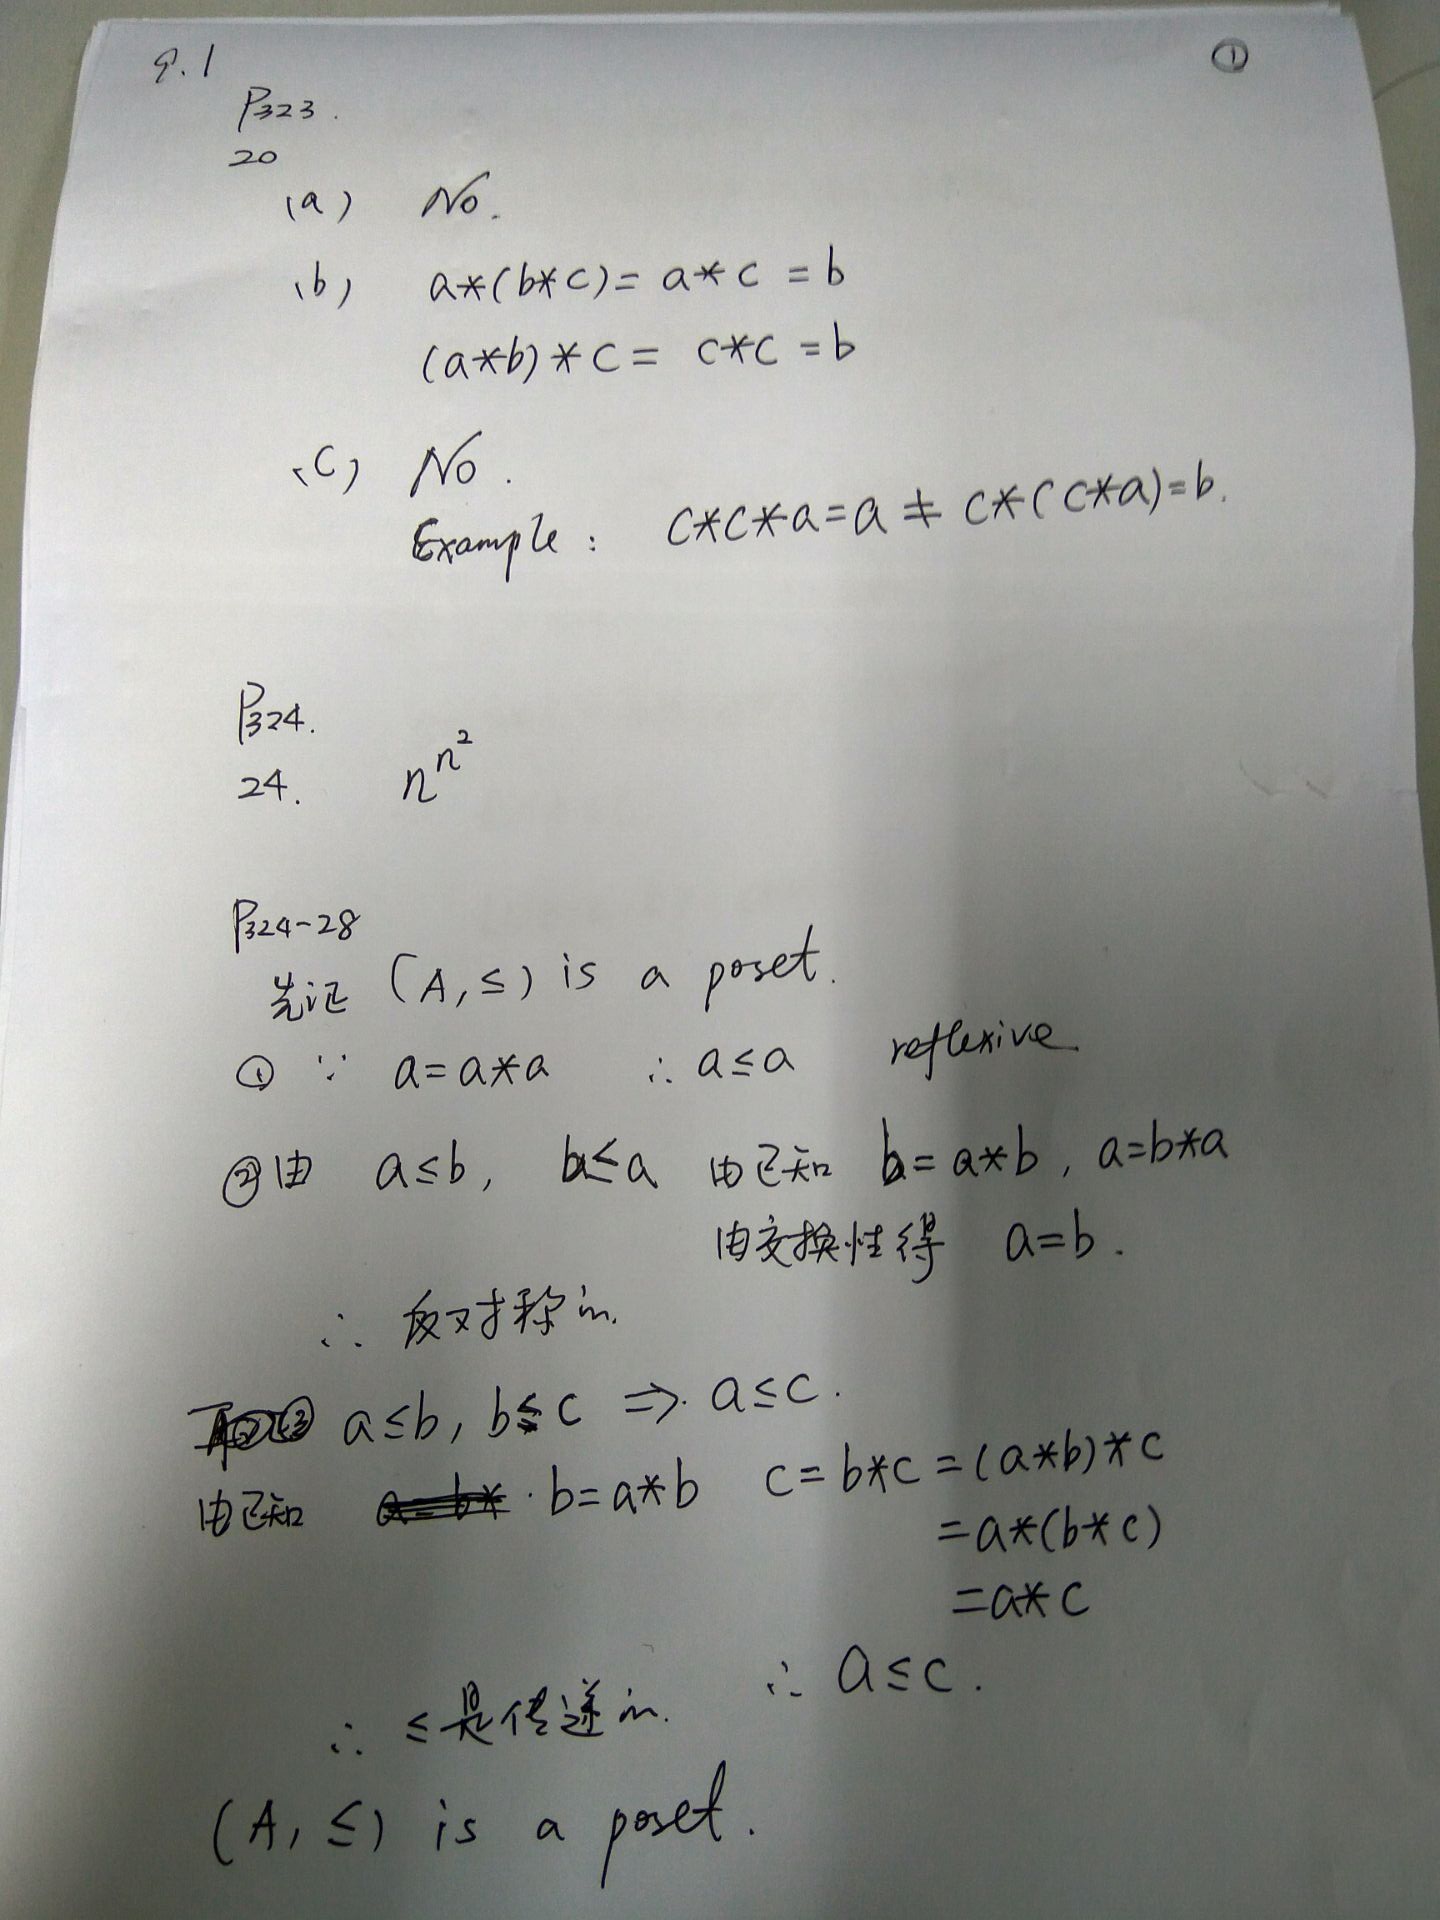 9.1
①
P323.
20
(a) No.
(b) a*(b*c)= a*c = b
(a*b)*c= c*c =b
(c) No.
Example: c*c*a=a≠ c*(c*a)=b.
P324.
24. n^{n^2}
P324-28
先证 (A,≤) is a poset.
① ∵ a=a*a ∴ a≤a reflexive
②由 a≤b, b≤a 由已知 b=a*b, a=b*a
由交换性得 a=b.
∴ 反对称的.
③ a≤b, b≤c ⇒ a≤c.
由已知 b=a*b c=b*c=(a*b)*c
=a*(b*c)
=a*c
∴ a≤c.
∴ ≤是传递的.
(A,≤) is a poset.